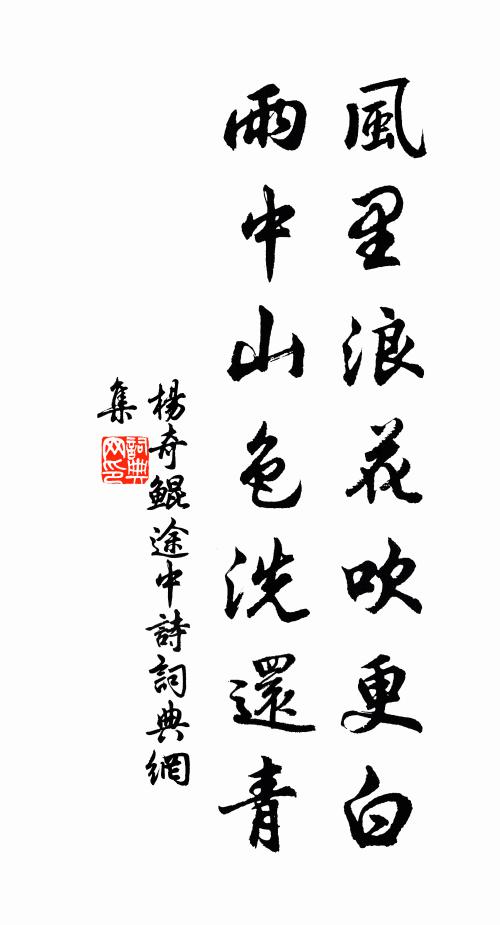 風里浪花吹更白
雨中山色洗還青
楊奇鯤途中詩詞典網
集
詞典
网印